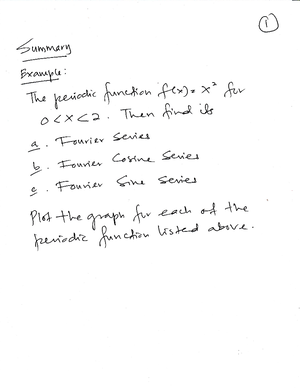 1
Summary
Example:
The periodic function f(x) = x² for
0 < x < 2. Then find its
a. Fourier Series
b. Fourier Cosine Series
c. Fourier Sine Series
Plot the graph for each of the
periodic function listed above.